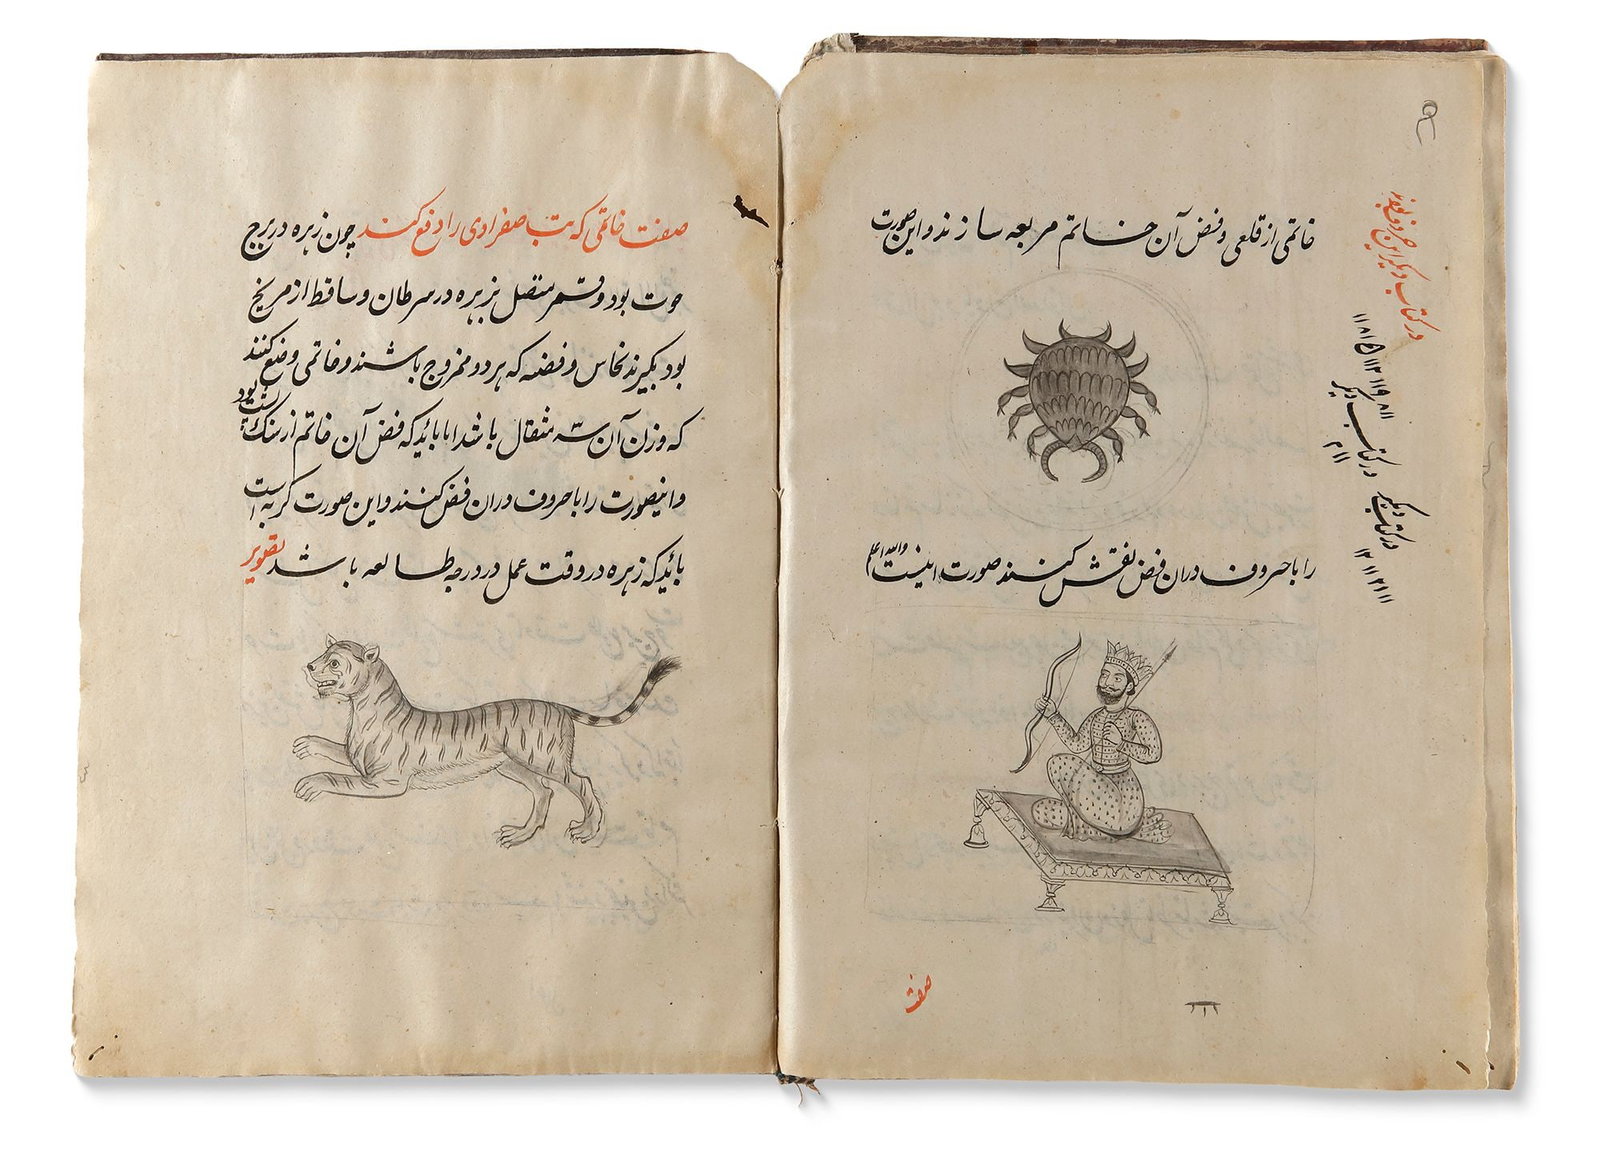 خاتمی از قلعی و فص آن خاتم مربعه سازند و این صورت
را با حروف دران فص نقش کنند صورت اینست والله اعلم
در کتاب دیگر این حروف بوده
در کتاب دیگر
در کتاب دیگر
صفت
صفت خاتمی که تب صفرادی را دفع کند چون زهره در برج
حوت بود و قمر متصل بزهره در سرطان و ساقط از مریخ
بود بگیرند نحاس و فضه که هر دو ممزوج باشند و خاتمی وضع کنند
که وزن آن سه مثقال باشد اما بائد که فص آن خاتم از سنک بود
و اینصورت را با حروف دران فص کنند و این صورت کربه است
بائد که زهره در وقت عمل در درجه طالعه باشد تصویر